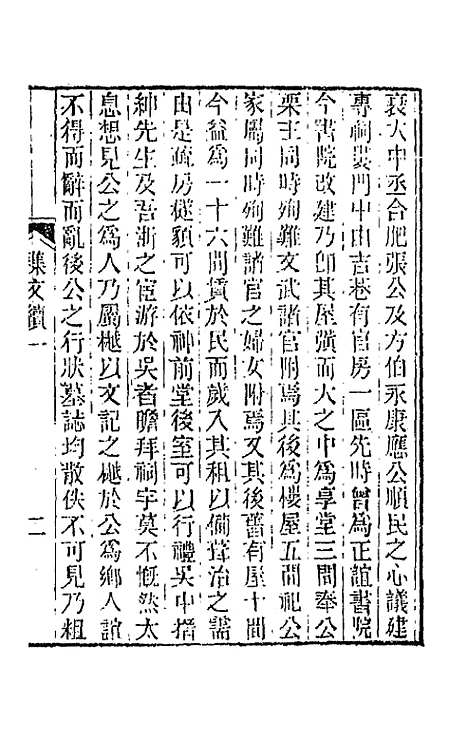 襄大中丞合肥張公及方伯永康應公順民之心議建
專祠婁門中由吉巷有官房一區先時曾為正誼書院
今書院改建乃卽其屋橫而大之中為享堂三間奉公
栗主同時殉難文武諸官附焉其後為樓屋五間祀公
家屬同時殉難諸官之婦女附焉又其後舊有屋十間
今益為一十六間賃於民而歲入其租以備葺治之需
由是疏房檖䫉可以依神前堂後室可以行禮吳中搢
紳先生及吾浙之宦游於吳者瞻拜祠宇莫不慨然太
息想見公之為人乃屬樾以文記之樾於公為鄉人誼
不得而辭而亂後公之行狀墓誌均散佚不可見乃粗
襍文續一
二